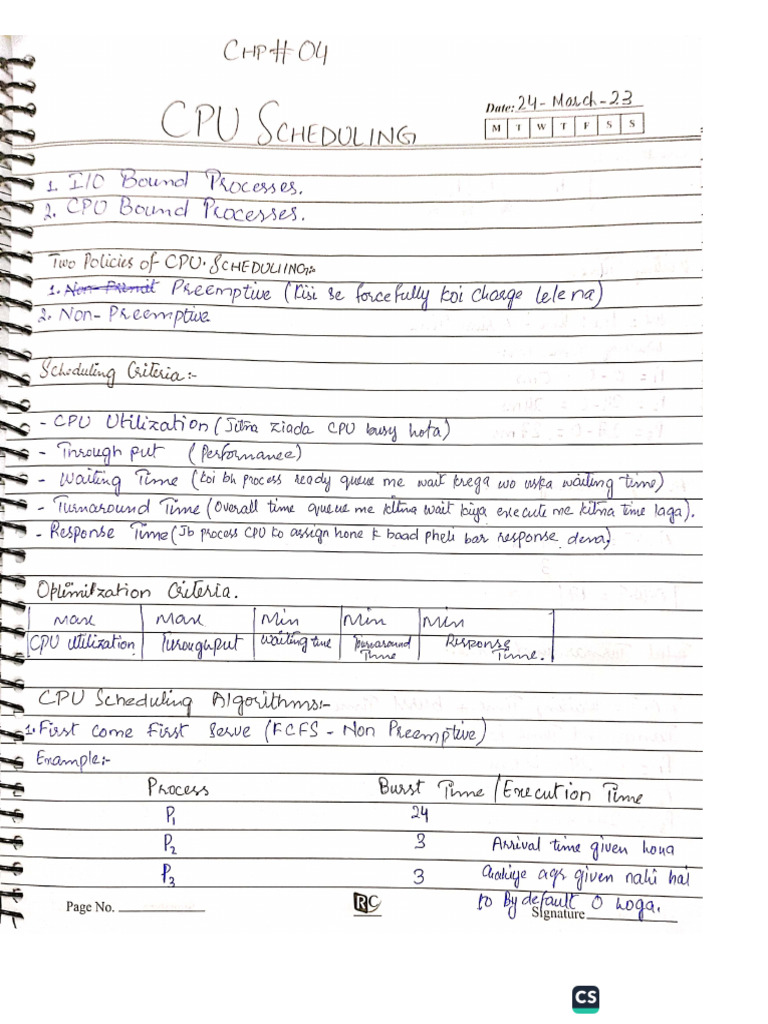 CHP# 04
CPU SCHEDULING
Date: 24-March-23
M T W T F S S
1. I/O Bound Processes.
2. CPU Bound Processes.
Two Policies of CPU. SCHEDULIING:-
1. Preemptive (Kisi se forcefully koi charge lelena)
2. Non-Preemptive
Scheduling Criteria:-
- CPU Utilization (Jitna ziada CPU busy hota)
- Through put (Performance)
- Waiting Time (koi bh process ready queue me wait krega wo uska waiting time)
- Turnaround Time (Overall time queue me kitna wait kiya execute me kitna time laga).
- Response Time (Jb process CPU ko assign hone k baad pheli bar response dena)
Optimilzation Criteria.
Max Max Min Min Min
CPU Utilization Throughput Waiting time Turnaround Time Response Time.
CPU Scheduling Algorithms:-
1. First come First Serve (FCFS - Non Preemptive)
Example:-
Process Burst Time / Execution Time
P1 24
P2 3 Arrival time given hona
P3 3 Chahiye agr given nahi hai
to By default 0 hoga.
Page No. RC Signature
CS